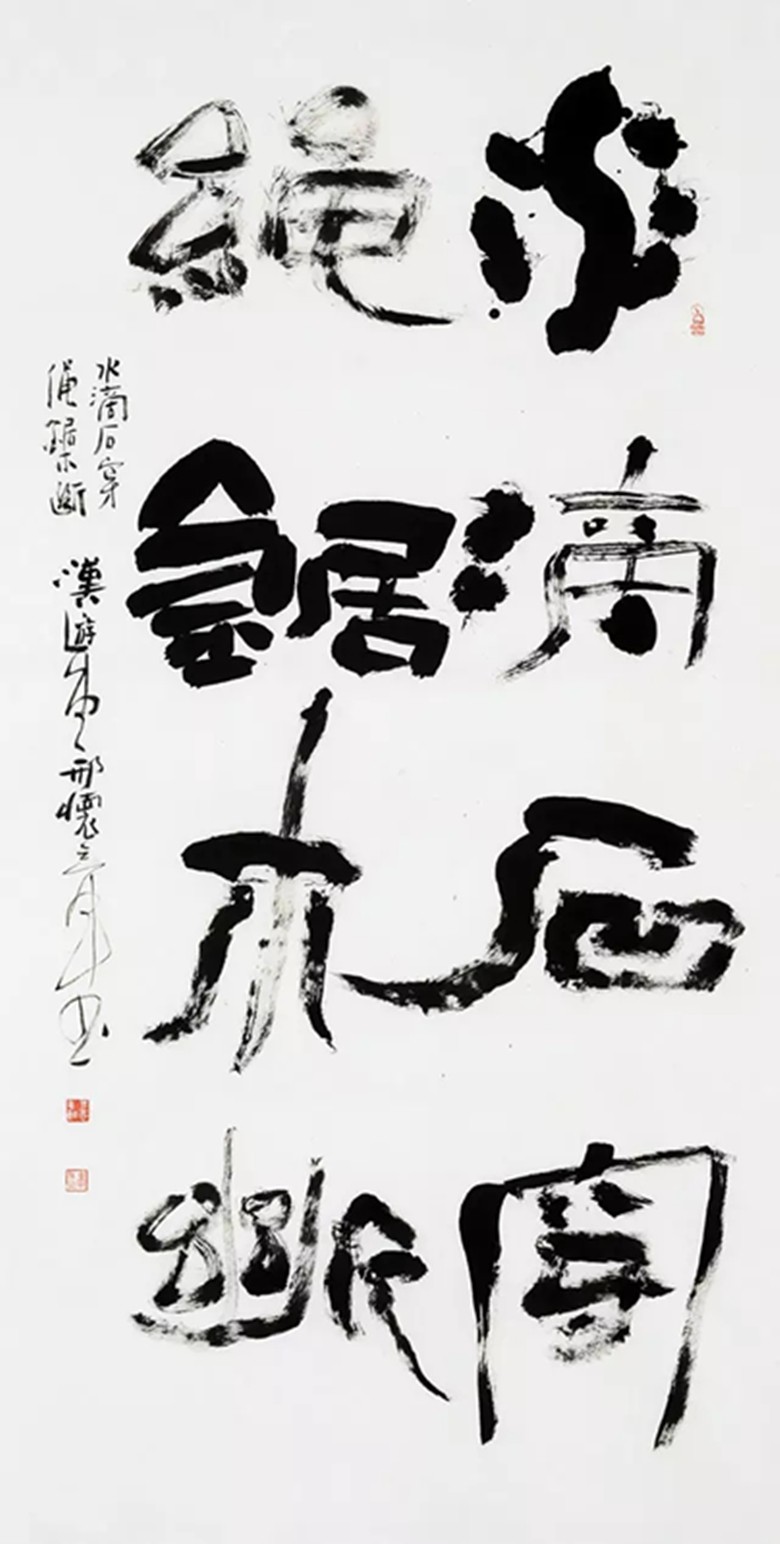 水滴石穿
繩鋸木斷
水滴石穿
繩鋸木斷
邢懷
书